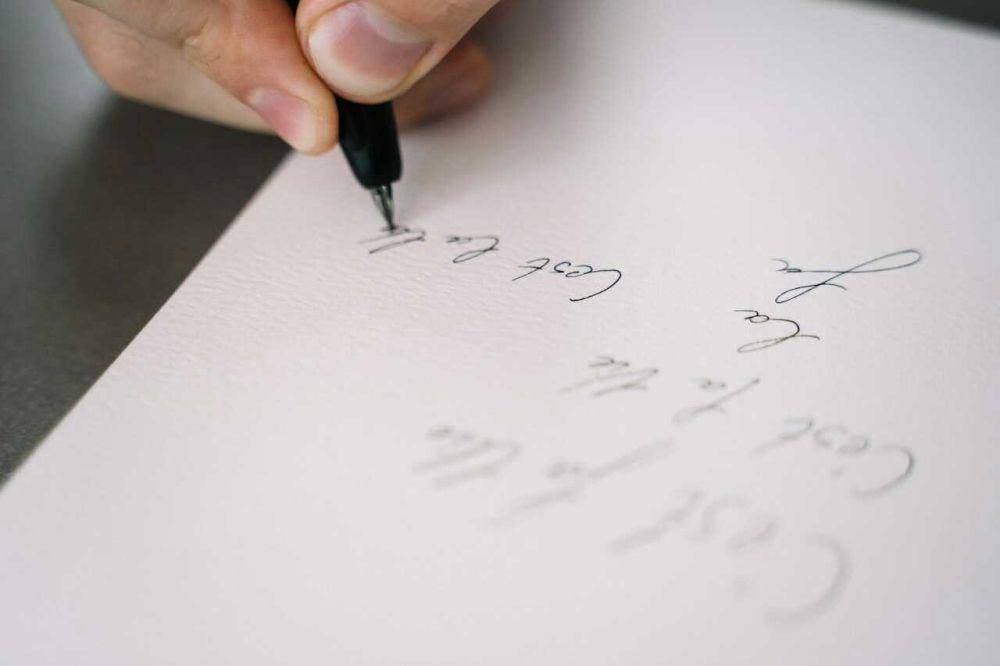 C'est la vie
C'est la vie
la C'est la vie
la